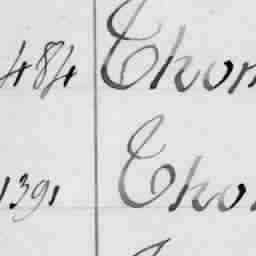 484 Thom
1391 Tho